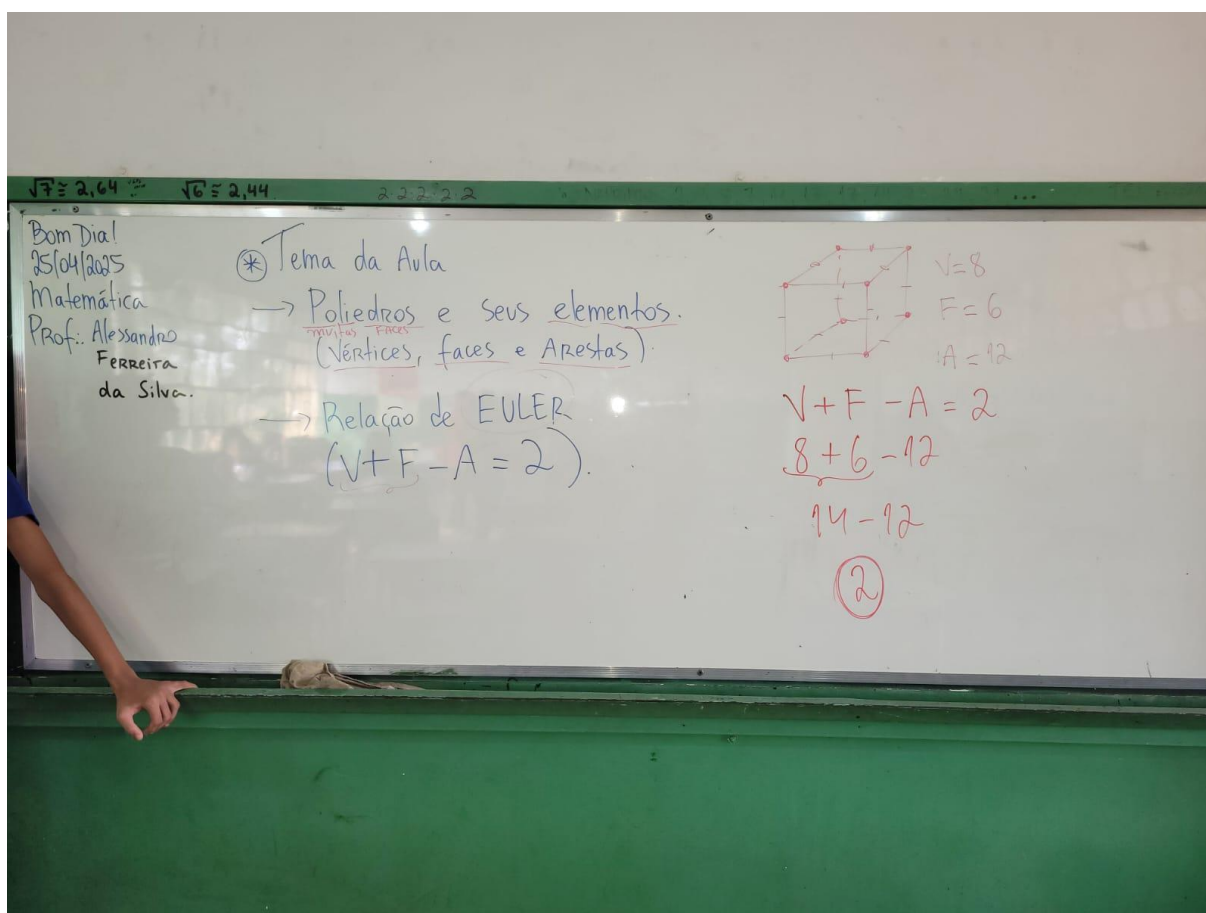 √7 ≅ 2,64 √6 ≅ 2,44 2·2·2·2·2
Bom Dia!
25/04/2025
Matemática
Prof.: Alessandro
Ferreira
da Silva.
* Tema da Aula
→ Poliedros e seus elementos.
muitas faces
(Vértices, faces e Arestas).
→ Relação de EULER
(V+F-A=2).
V=8
F=6
A=12
V+F-A=2
8+6-12
14-12
2